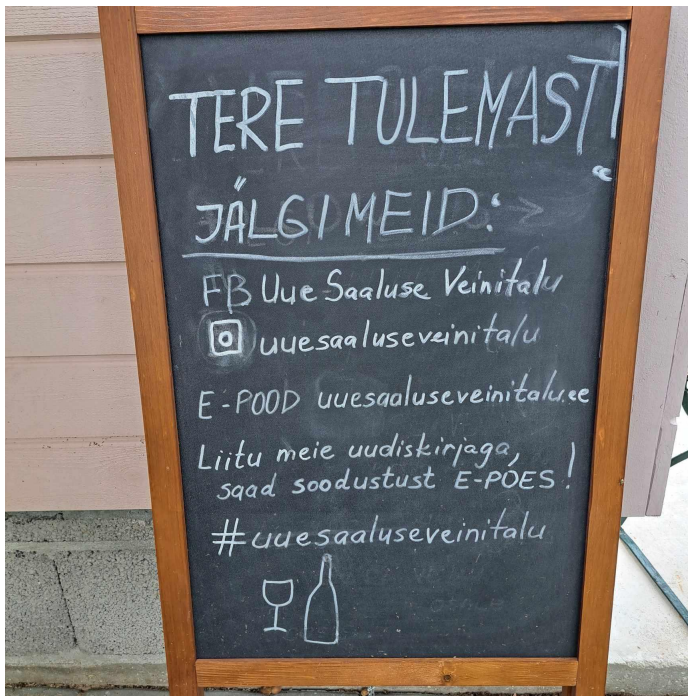 TERE TULEMAST!
JÄLGI MEID:
FB Uue Saaluse Veinitalu
uuesaaluseveinitalu
E-POOD uuesaaluseveinitalu.ee
Liitu meie uudiskirjaga,
saad soodustust E-POES!
#uuesaaluseveinitalu